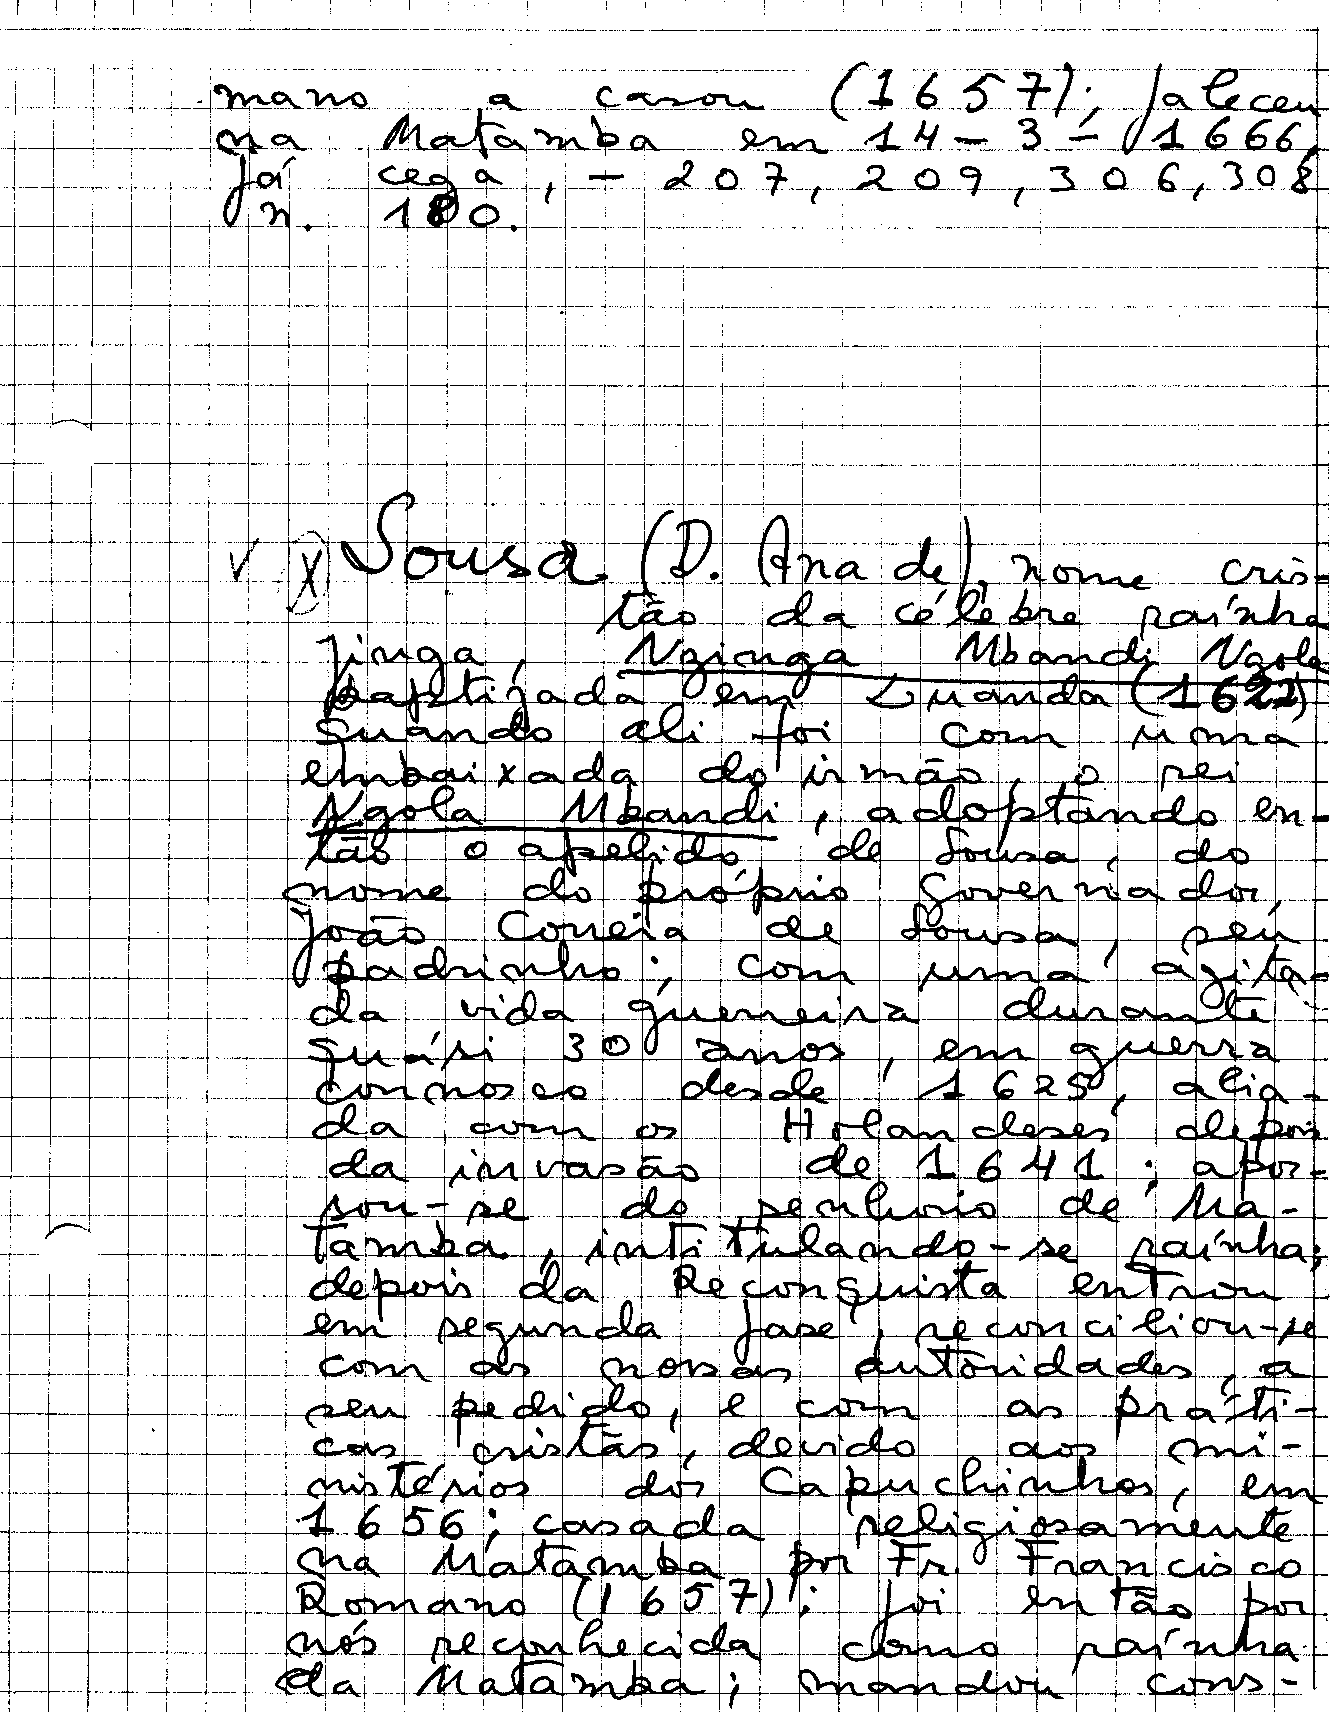 mano a casou (1657); faleceu
na Matamba em 14-3-1666,
já cega, - 207, 209, 306, 308
n. 180.
v x Sousa (D. Ana de), nome cris-
tão da célebre raínha
Jinga, Nzinga Mbandi Ngola
baptizada em Luanda (1622)
quando ali foi com uma
embaixada do irmão, o rei
Ngola Mbandi, adoptando en-
tão o apelido de Sousa, do
nome do próprio Governador,
João Correia de Sousa, seu
padrinho; com uma agita-
da vida guerreira durante
quási 30 anos, em guerra
connosco desde 1625, alia-
da com os Holandeses depois
da invasão de 1641; apos-
sou-se do senhorio de Ma-
tamba, intitulando-se raínha;
depois da Reconquista entrou
em segunda fase, reconciliou-se
com as nossas autoridades, a
seu pedido, e com as práti-
cas cristãs, devido aos mi-
nistérios dos Capuchinhos, em
1656; casada religiosamente
na Matamba por Fr. Francisco
Romano (1657); foi então por
nós reconhecida como raínha
da Matamba; mandou cons-